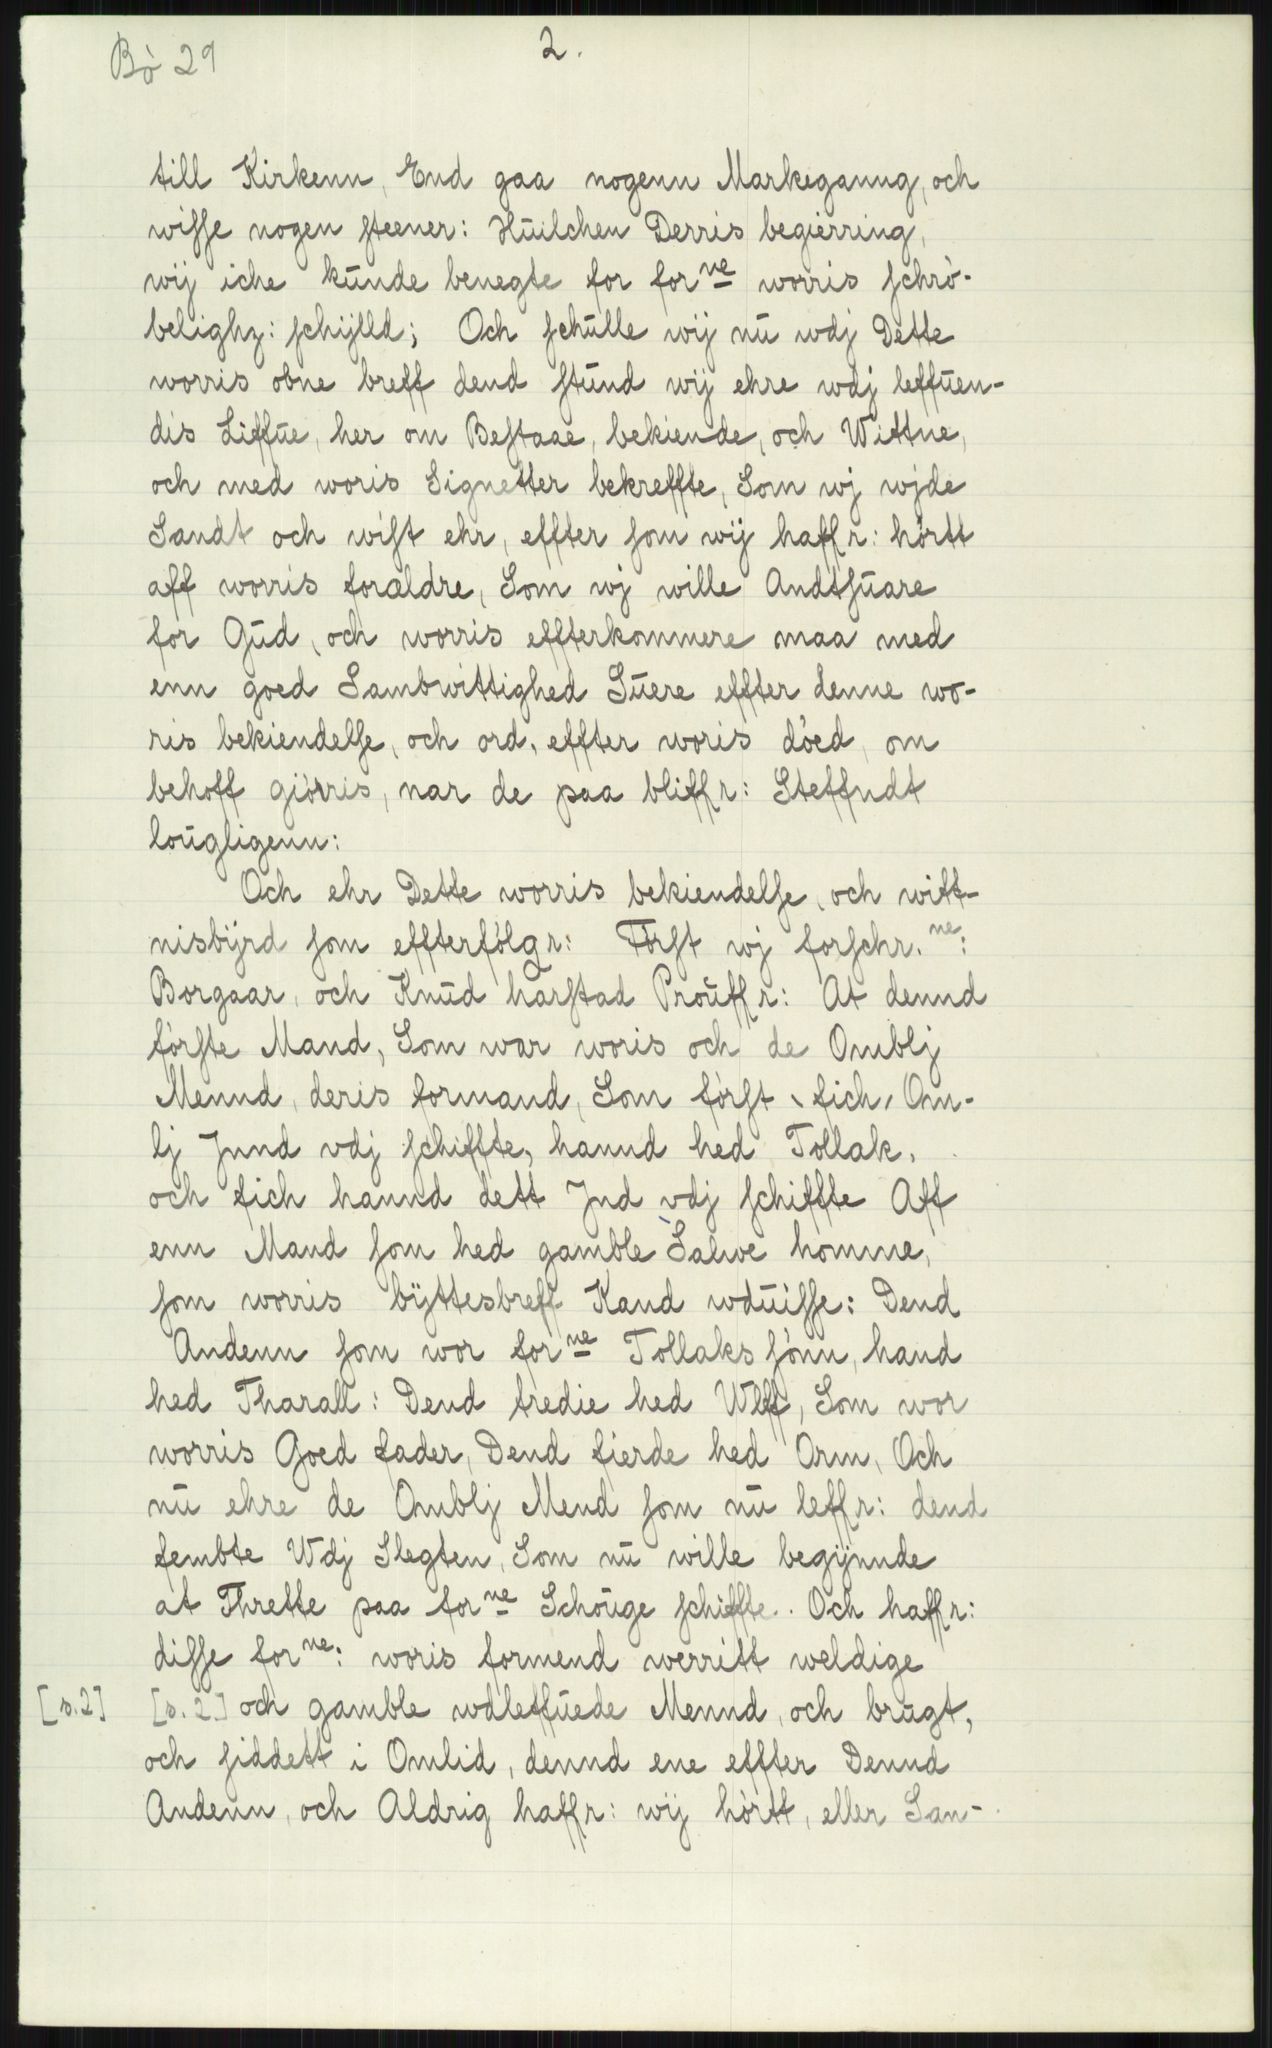 Bò 29
2.
till Kirkenn, End gaa nogenn Markeganng, och
wisse nogen steener: Huilchen Derris begierring,
wij iche kunde benegte for forne worris schrò-
belighz: schijlld; Och schulle wij nu wdj Dette
worris obne breff dend stund wij ehre wdj leffuen-
dis Liffue, her om Bestaae, bekiende, och Wittne,
och med woris Signetter bekreffte, Som wj wjde
Sandt och wist ehr, effter som wij haffr: hòrtt
aff worris foraldre, Som wj wille Andtsuare
for Gud, och worris effterkommere maa med
enn goed Sambwittighed Suere effter denne wo-
ris bekiendelse, och ord, effter woris dòed, om
behoff giòrris, nar de paa bliffr: Steffndt
lougligenn:
Och ehr Dette worris bekiendelse, och witt-
nisbijrd som effterfòlgr: Fòrst wj forschr.ne:
Borgaar, och Knud harstad Prouffr: At dennd
fòrste Mand, Som war woris och de Omblj
Mennd, deris formand, Som fòrst, fich, Om-
lj Jnnd vdj schiffte, hannd hed Tollak,
och fich hannd dett Jnd vdj schiffte Aff
enn Mand som hed gamble Salwe homme,
som worris bijttesbreff Kand wduisse: Dend
Andenn som wor forne Tollaks sònn, hand
hed Tharall: Dend tredie hed Wlff, Som wor
worris Goed fader, Dend fierde hed Orm, Och
nu ehre de Omblj Mend som nu leffr: dend
fembte Wdj Slegten, Som nu wille begijnnde
at Thrette paa forne Schouge schiffte. Och haffr:
disse forne: woris formend werritt weldige
[s.2] [s. 2.] och gamble wdleffuede Mennd, och brugt,
och siddett i Omlid, dennd ene effter Dennd
Andenn, och Aldrig haffr: wij hòrtt, eller San-